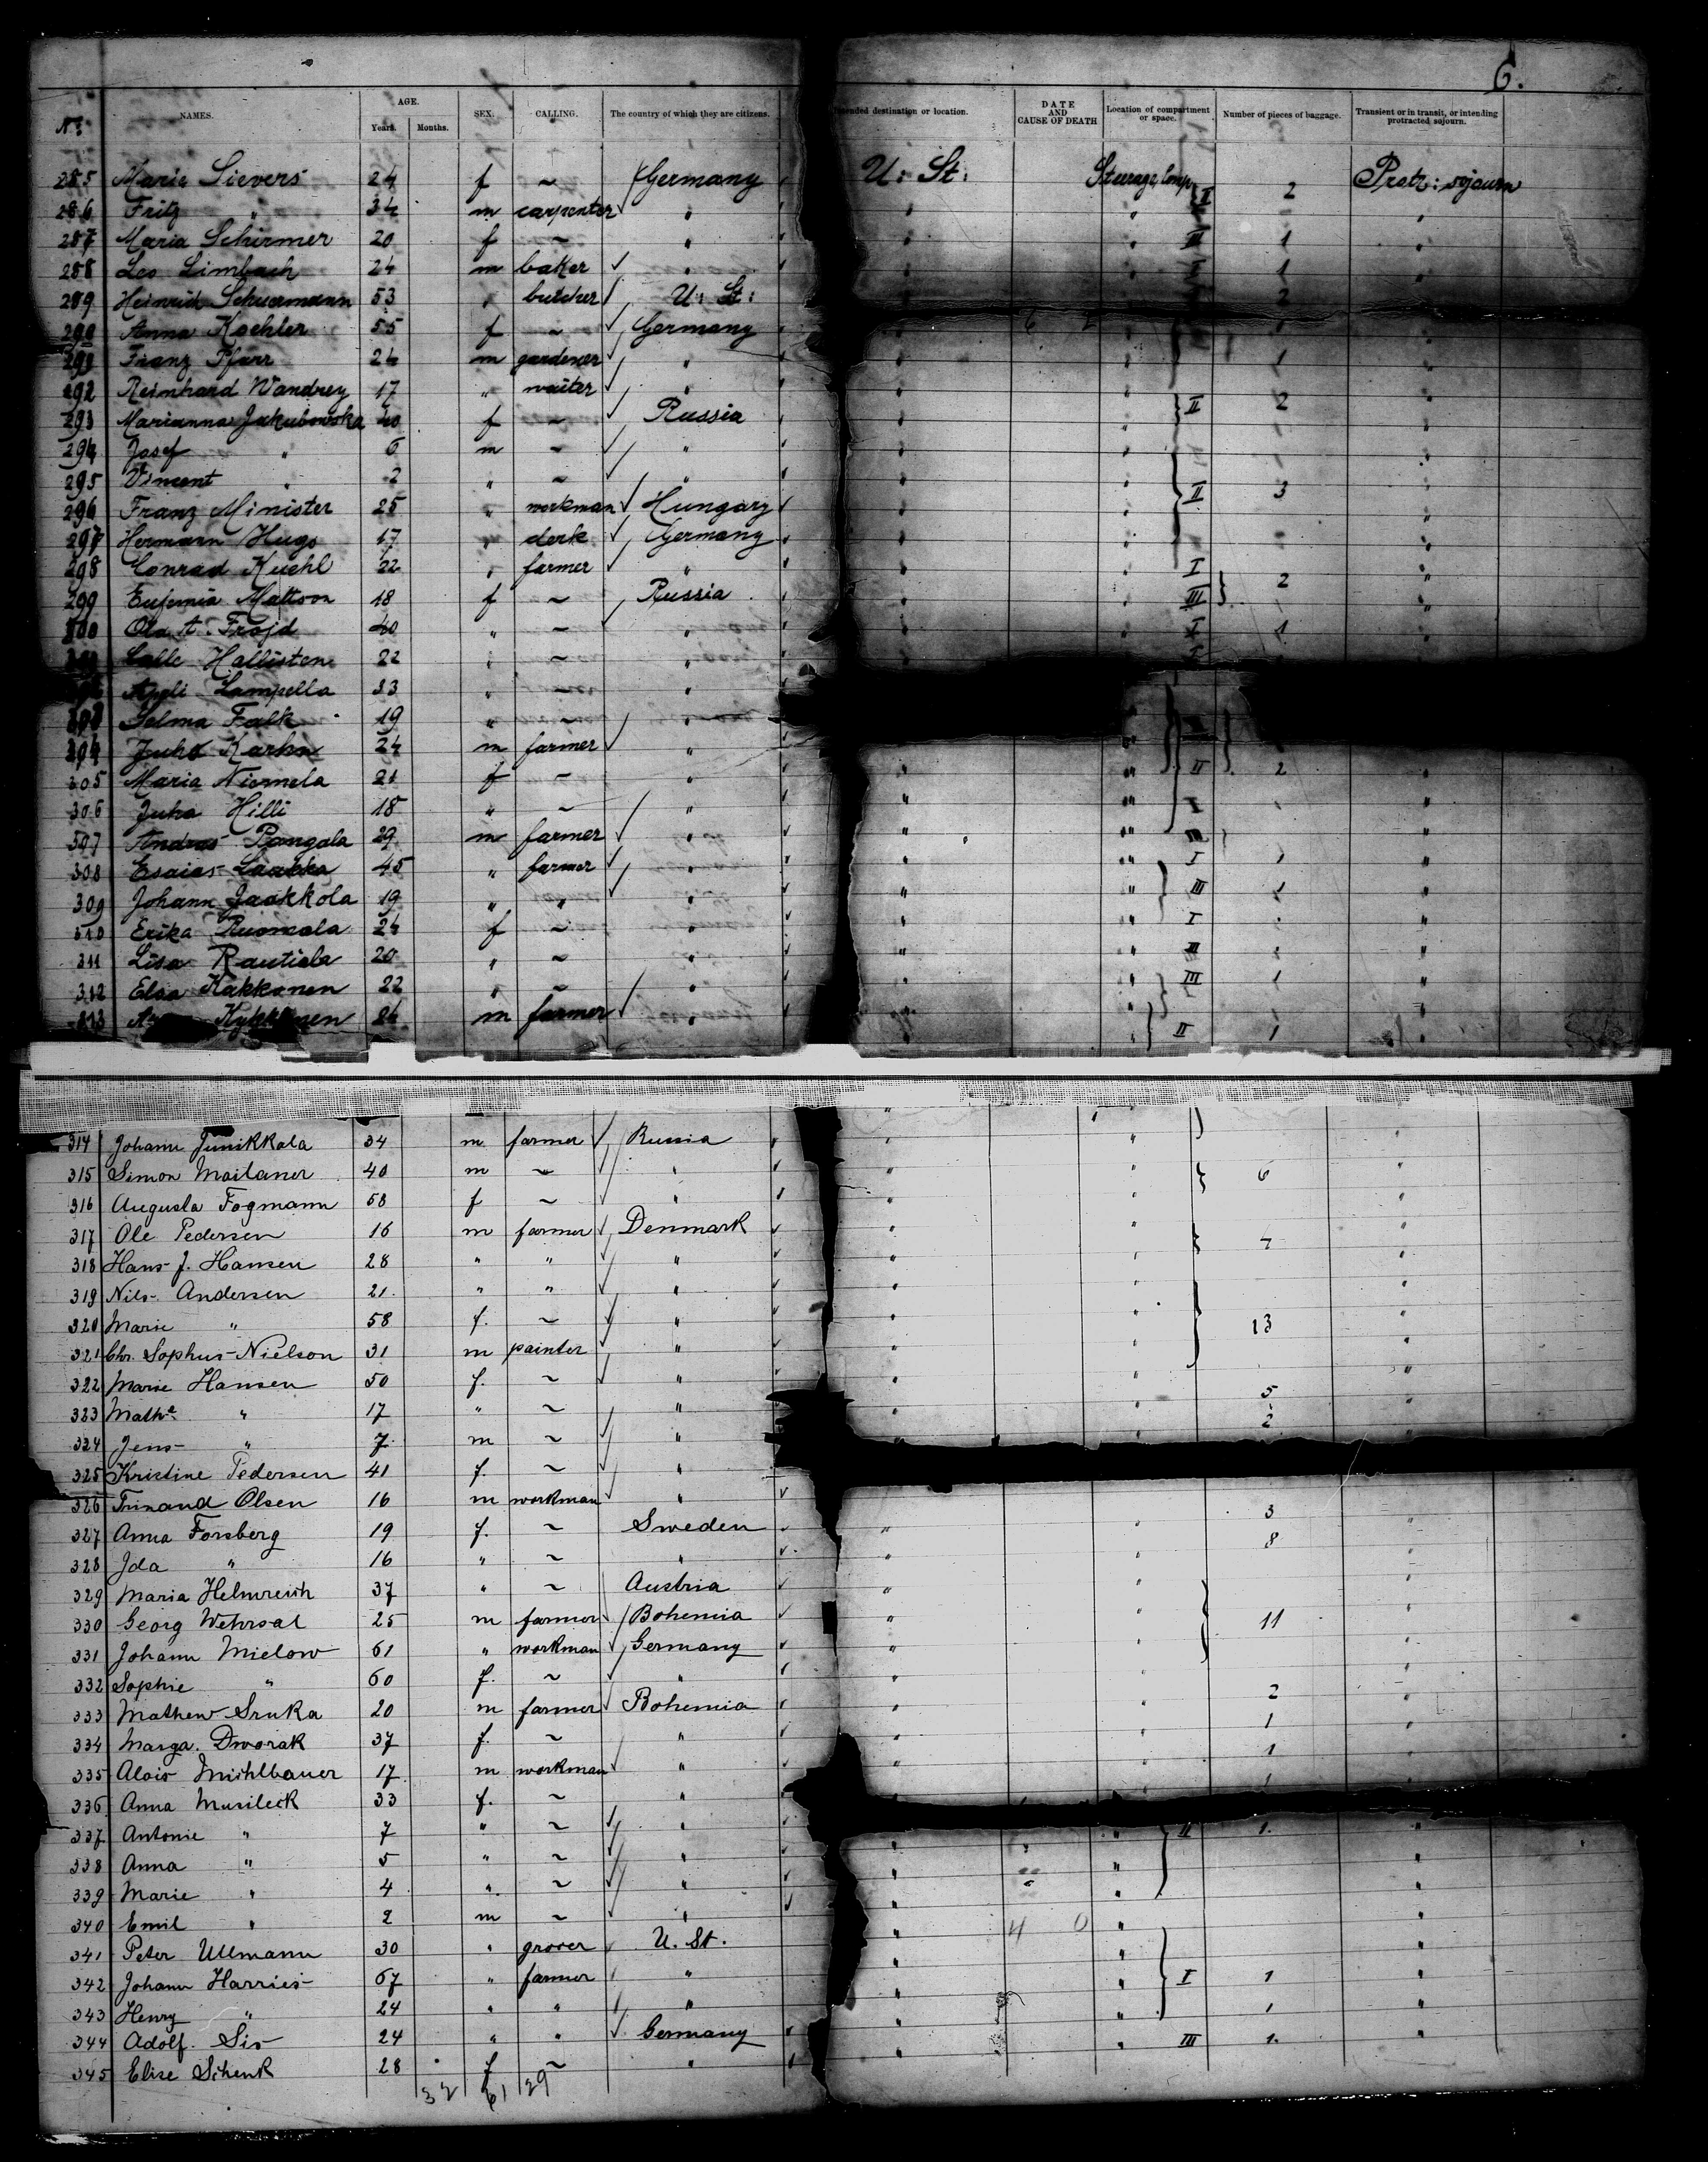 6.
No. NAMES. AGE. Years. Months. SEX. CALLING. The country of which they are citizens. Intended destination or location. DATE AND CAUSE OF DEATH Location of compartment or space. Number of pieces of baggage. Transient or in transit, or intending protracted sojourn.
285 Marie Sievers 24 f ~ Germany U. St. Steerage, Comp. I 2 Protr: sojourn
286 Fritz " 34 m carpenter "
287 Maria Schirmer 20 f ~ " III 1
288 Leo Limbach 24 m baker " 1
289 Heinrich Schuermann 53 " butcher U. St. 2
290 Anna Koehler 55 f ~ Germany
291 Franz Pfarr 24 m gardener " 1
292 Reinhard Wandrey 17 " waiter "
293 Marianna Jakubowska 40 f ~ Russia II 2
294 Josef " 6 m ~ "
295 Vincent " 2 " ~ "
296 Franz Minister 25 " workman Hungary II 3
297 Hermann Hugo 17 " clerk Germany
298 Conrad Kuehl 22 " farmer " I
299 Eufemia Mattson 18 f ~ Russia III 2
300 Ola A. Frojd 40 " ~ " I 1
Lalle Hallisten 22 " ~ "
Lampella 33 " ~ "
Selma Falk 19 " ~ "
304 Juho Karhu 24 m farmer "
305 Maria Niemela 21 f ~ " II 2
306 Juha Hilli 18 " ~ " I
307 Andras Pangala 29 m farmer " III
308 Esaias Laakka 45 " farmer " I 1
309 Johann Jaakkola 19 " " " III 1
310 Erika Ruomala 24 f ~ " I
311 Lisa Rautiala 20 " ~ " III
312 Elsa Kakkonen 22 " ~ " III 1
313 24 m farmer " II 1
314 Johann Junikkala 34 m farmer Russia
315 Simon Mailaner 40 m ~ " 6
316 Augusta Fogmann 58 f ~ "
317 Ole Pedersen 16 m farmer Denmark 7
318 Hans J. Hansen 28 " " "
319 Nils Andersen 21 " " "
320 Marie " 58 f. ~ " 13
321 Chr. Sophus Nielson 31 m painter "
322 Marie Hansen 50 f. ~ "
323 Mathe " 17 " ~ " 5
324 Jens " 7 m ~ " 2
325 Kristine Pedersen 41 f. ~ "
326 Olsen 16 m workman "
327 Anna Forsberg 19 f. ~ Sweden 3
328 Ida " 16 " ~ " 8
329 Maria Helmreich 37 " ~ Austria
330 Georg Wehrsal 25 m farmer Bohemia 11
331 Johann Mielow 61 " workman Germany
332 Sophie " 60 f. ~ "
333 Mathew Sruka 20 m farmer Bohemia 2
334 Marga. Dworak 37 f. ~ " 1
335 Alois Mühlbauer 17 m workman " 1
336 Anna Musileck 33 f. ~ "
337 Antonie " 7 " ~ " II 1.
338 Anna " 5 " ~ "
339 Marie " 4 " ~ "
340 Emil " 2 m ~ " 4 0
341 Peter Ullmann 30 " grocer U. St.
342 Johann Harries 67 " farmer " I 1
343 Henry " 24 " " " 1
344 Adolf. Sis 24 " " Germany III 1.
345 Elise Schenk 28 f ~ "
32 61 29